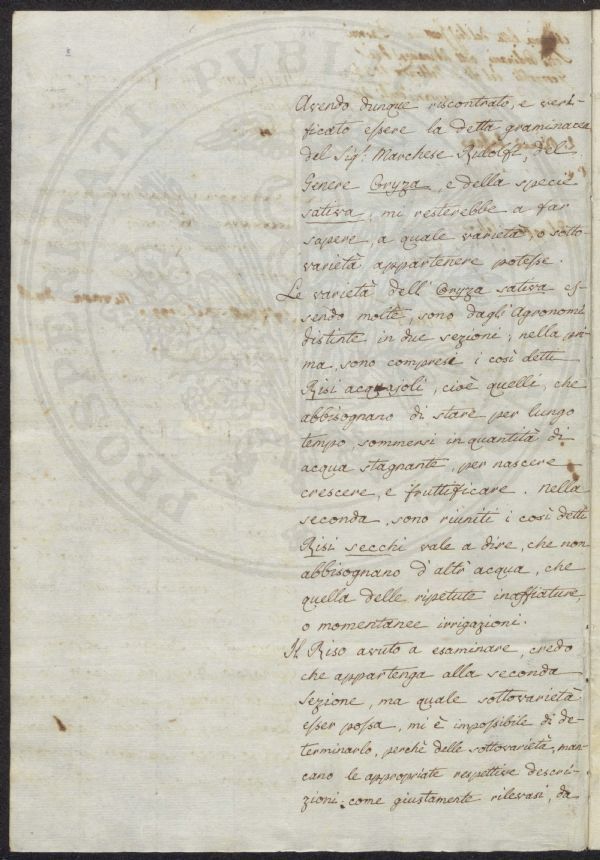 PROSPERITATI PVBLICAE
Avendo dunque riscontrato, e veri-
ficato essere la detta graminacea
del Sigr. Marchese Ridolfi, del
Genere Oryza, e della specie
sativa, mi resterebbe a far
sapere, a quale varietà, o sotto-
varietà appartenere potesse.
Le varietà dell' Oryza sativa es-
sendo molte, sono dagl' Agronomi
distinte in due sezioni; nella pri-
ma, sono compresi i così detti
Risi acquajoli, cioè quelli, che
abbisognano di stare per lungo
tempo, sommersi in quantità di
acqua stagnante, per nascere
crescere, e fruttificare. Nella
seconda, sono riuniti i così detti
Risi secchi vale a dire, che non
abbisognano d'altr' acqua, che
quella delle ripetute inaffiature,
o momentanee irrigazioni.
Il Riso avuto a esaminare, credo
che appartenga alla seconda
sezione, ma quale sottovarietà
esser possa, mi è impossibile di de-
terminarlo, perchè delle sottovarietà, man-
cano le appropriate respettive descri-
zioni; come giustamente rilevasi, da